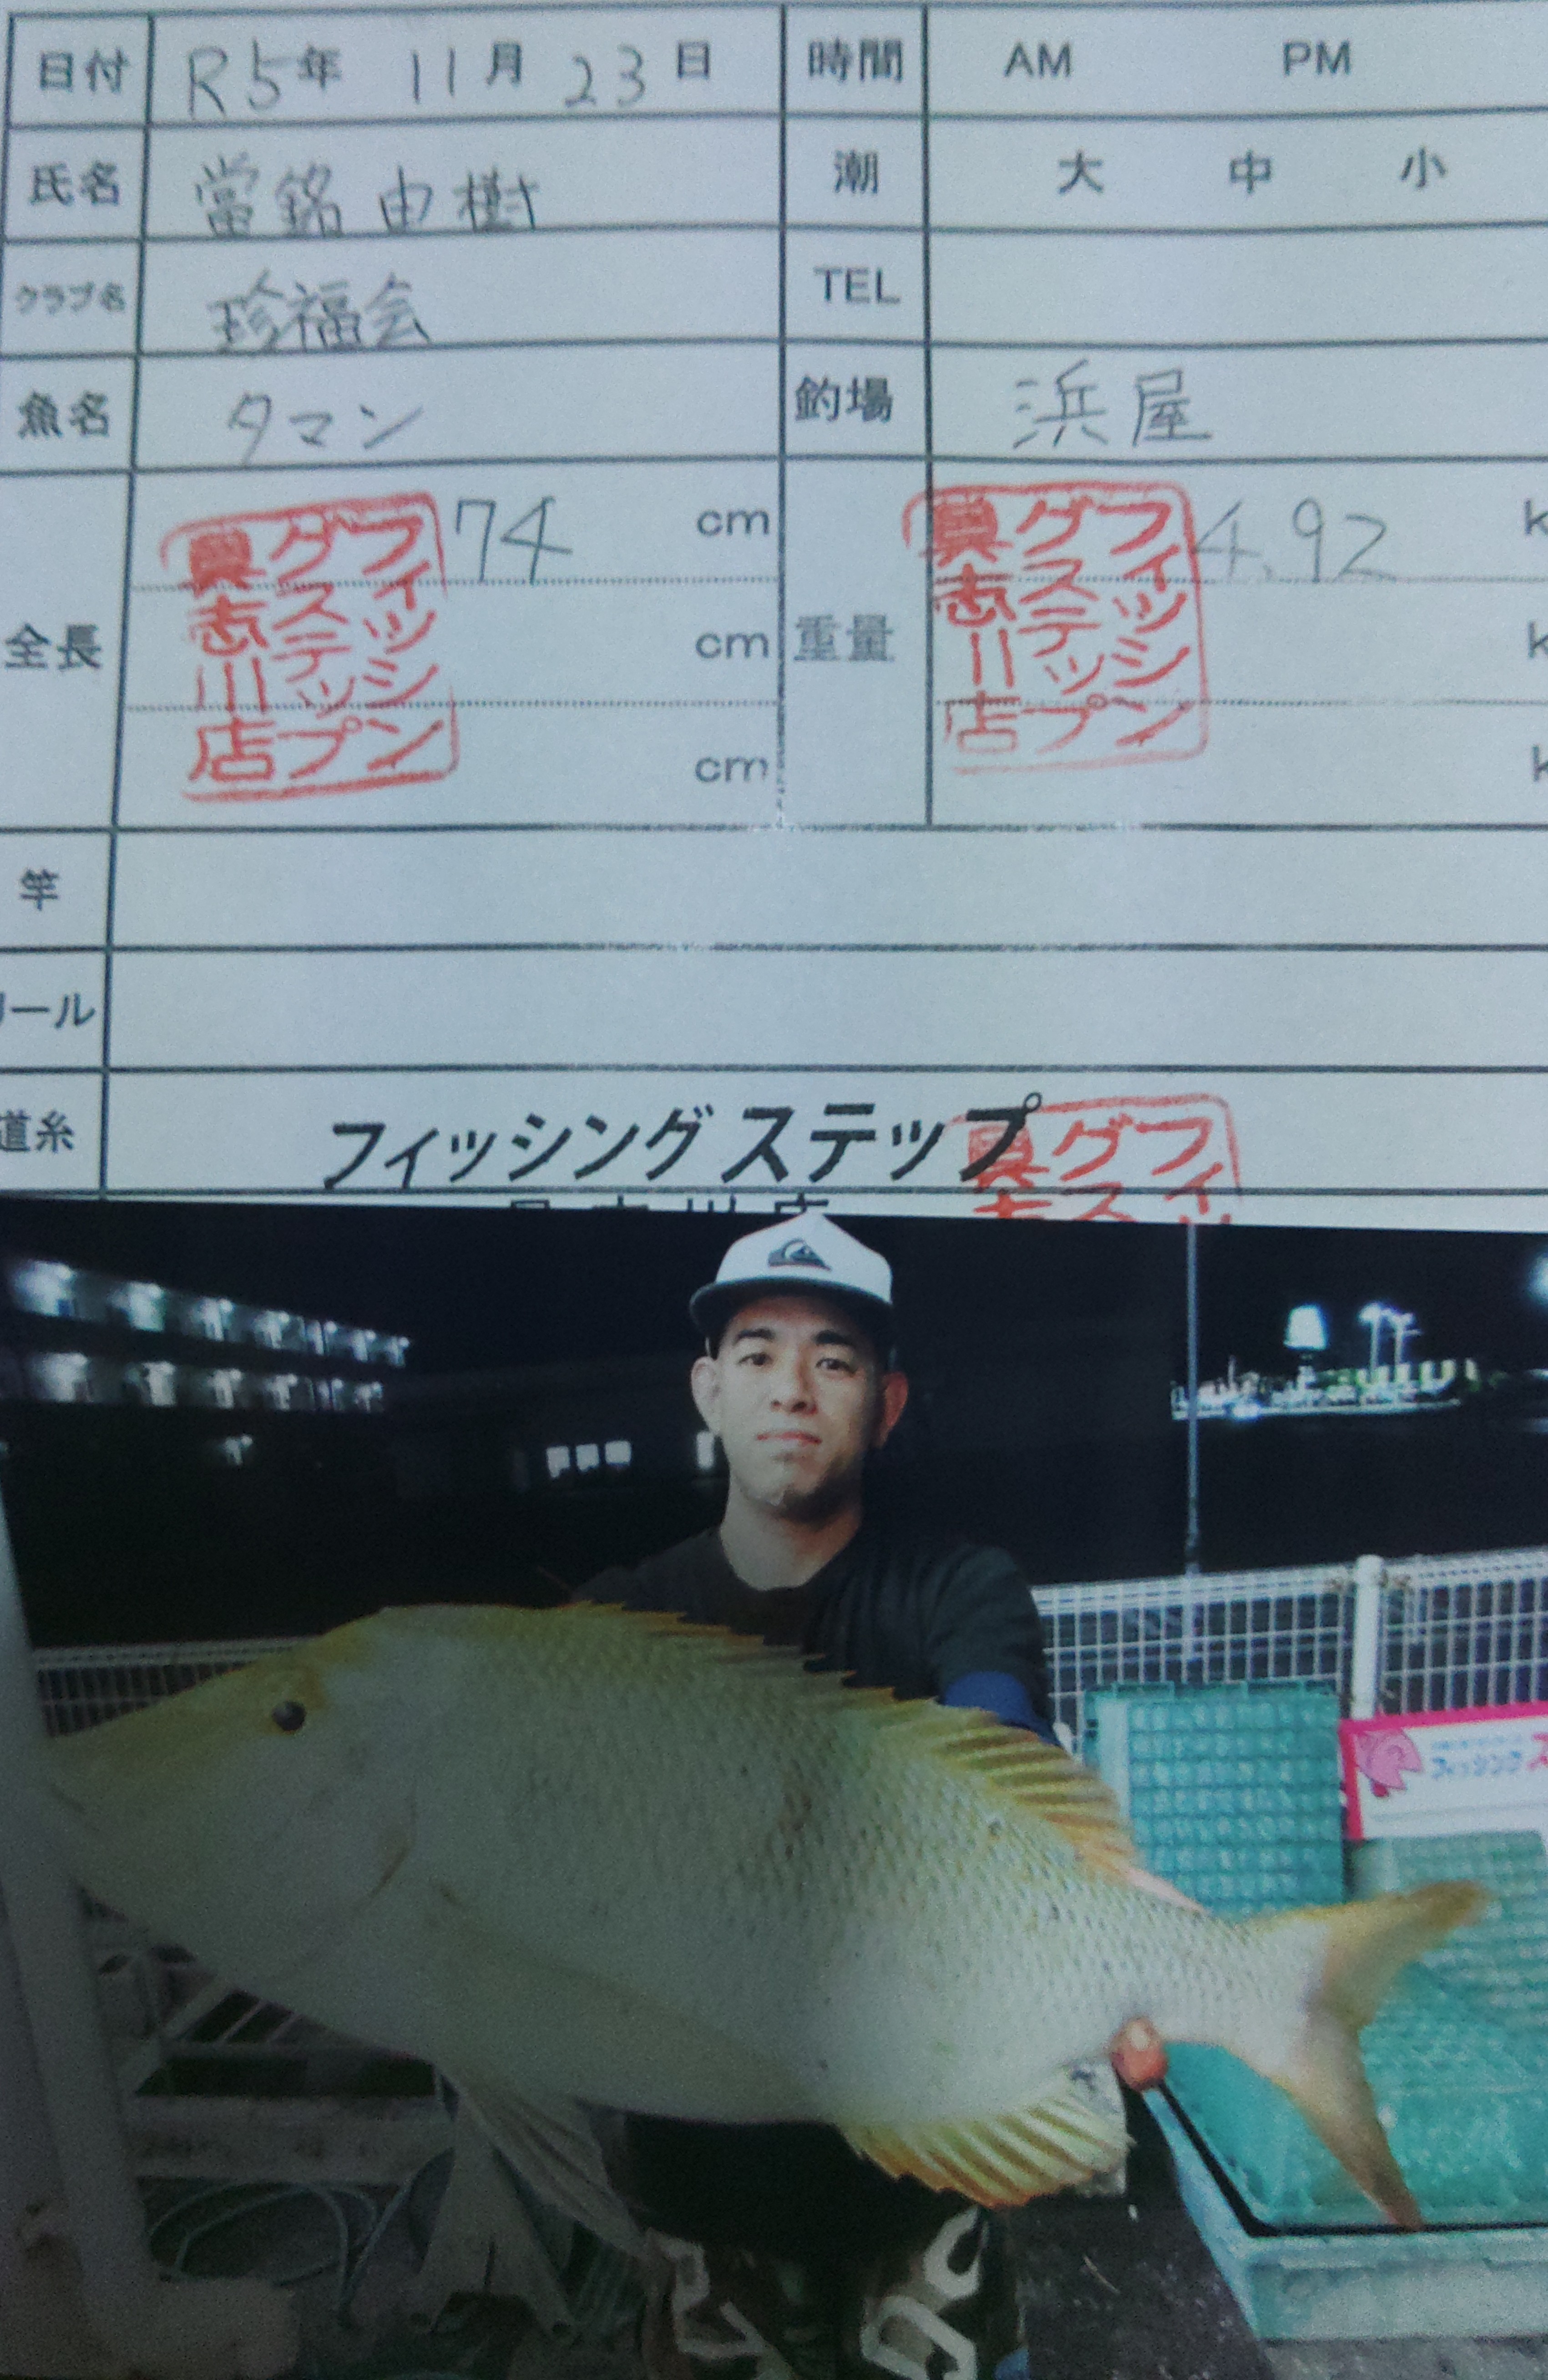 日付 R5年 11月 23日 時間 AM PM
氏名 當銘由樹 潮 大 中 小
クラブ名 珍福会 TEL
魚名 タマン 釣場 浜屋
全長 74 cm 重量 4.92 k
cm k
cm k
フィッシン
グステップ
具志川店
フィッシン
グステップ
具志川店
竿
リール
道糸
フィッシング ステップ
具志川店
フィ
グス
具志
フィッシング ス